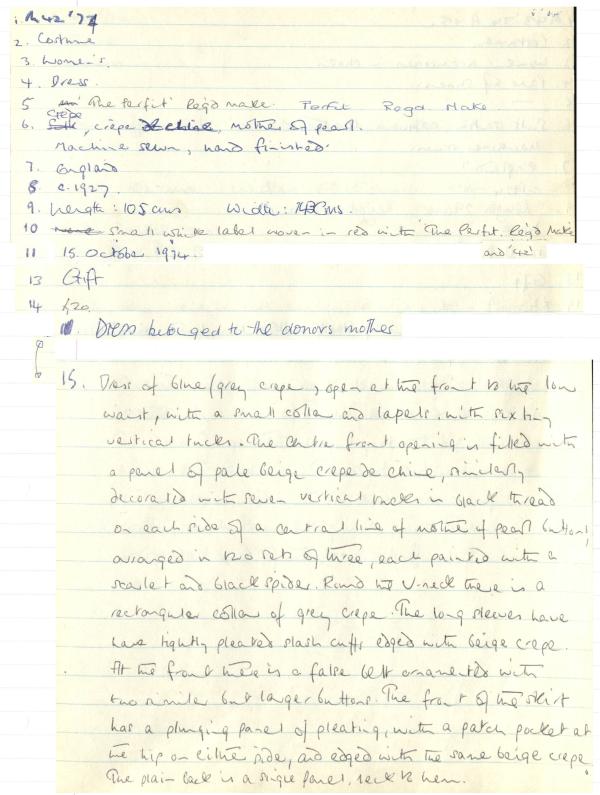 1. M42 '74
2. Costume
3. Women's.
4. Dress.
5 'The Perfit' Reg'd make. Perfit Regd. Make
crêpe
6. silk, crêpe de chine, mother of pearl.
Machine sewn, hand finished.
7. England
8 c. 1927.
9. Length: 105 cms Width: cms.
10 none small white label woven in red with 'The Perfit. Reg'd Make
and '42'.
11 15. October 1974.
13 Gift
14 £20.
Dress belonged to the donors mother
15. Dress of blue/grey crepe, open at the front to the low
waist, with a small collar and lapels, with six tiny
vertical tucks. The centre front opening is filled with
a panel of pale beige crepe de chine, similarly
decorated with seven vertical tucks in black thread
on each side of a central line of mother of pearl buttons,
arranged in two sets of three, each painted with a
scarlet and black spider. Round the V-neck there is a
rectangular collar of grey crepe. The long sleeves have
have tightly pleated slash cuffs edged with beige crepe.
At the front there is a false belt ornamented with
two similar but larger buttons. The front of the skirt
has a plunging panel of pleating, with a patch pocket at
the hip on either side, and edged with the same beige crepe.
The plain back is a single panel, neck to hem.